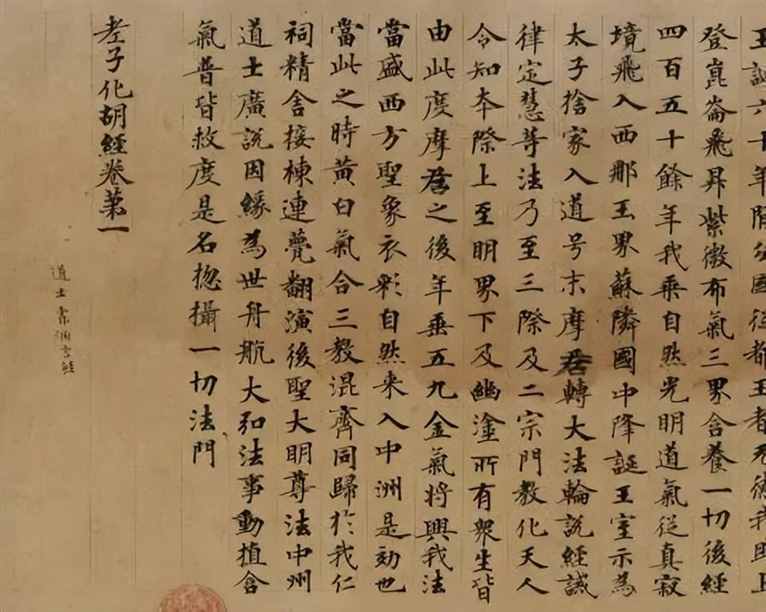 王誕六十年間分國從都王者无德我即上
登崑崙飛昇紫微布氣三界含養一切後經
四百五十餘年我乘自然光明道氣從真寂
境飛入西那玉界蘇隣國中降誕王室示為
太子捨家入道号末摩尼轉大法輪說經誡
律定慧等法乃至三際及二宗門教化天人
令知本際上至明界下及幽塗所有衆生皆
由此度摩尼之後年垂五九金氣將興我法
當盛西方聖象衣彩自然来入中洲是効也
當此之時黃白氣合三教混齊同歸於我仁
祠精舍接棟連甍翻演後聖大明尊法中州
道士廣說因緣為世舟航大弘法事動植含
氣普皆救度是名惣攝一切法門
老子化胡經卷第一
道士索洞玄經